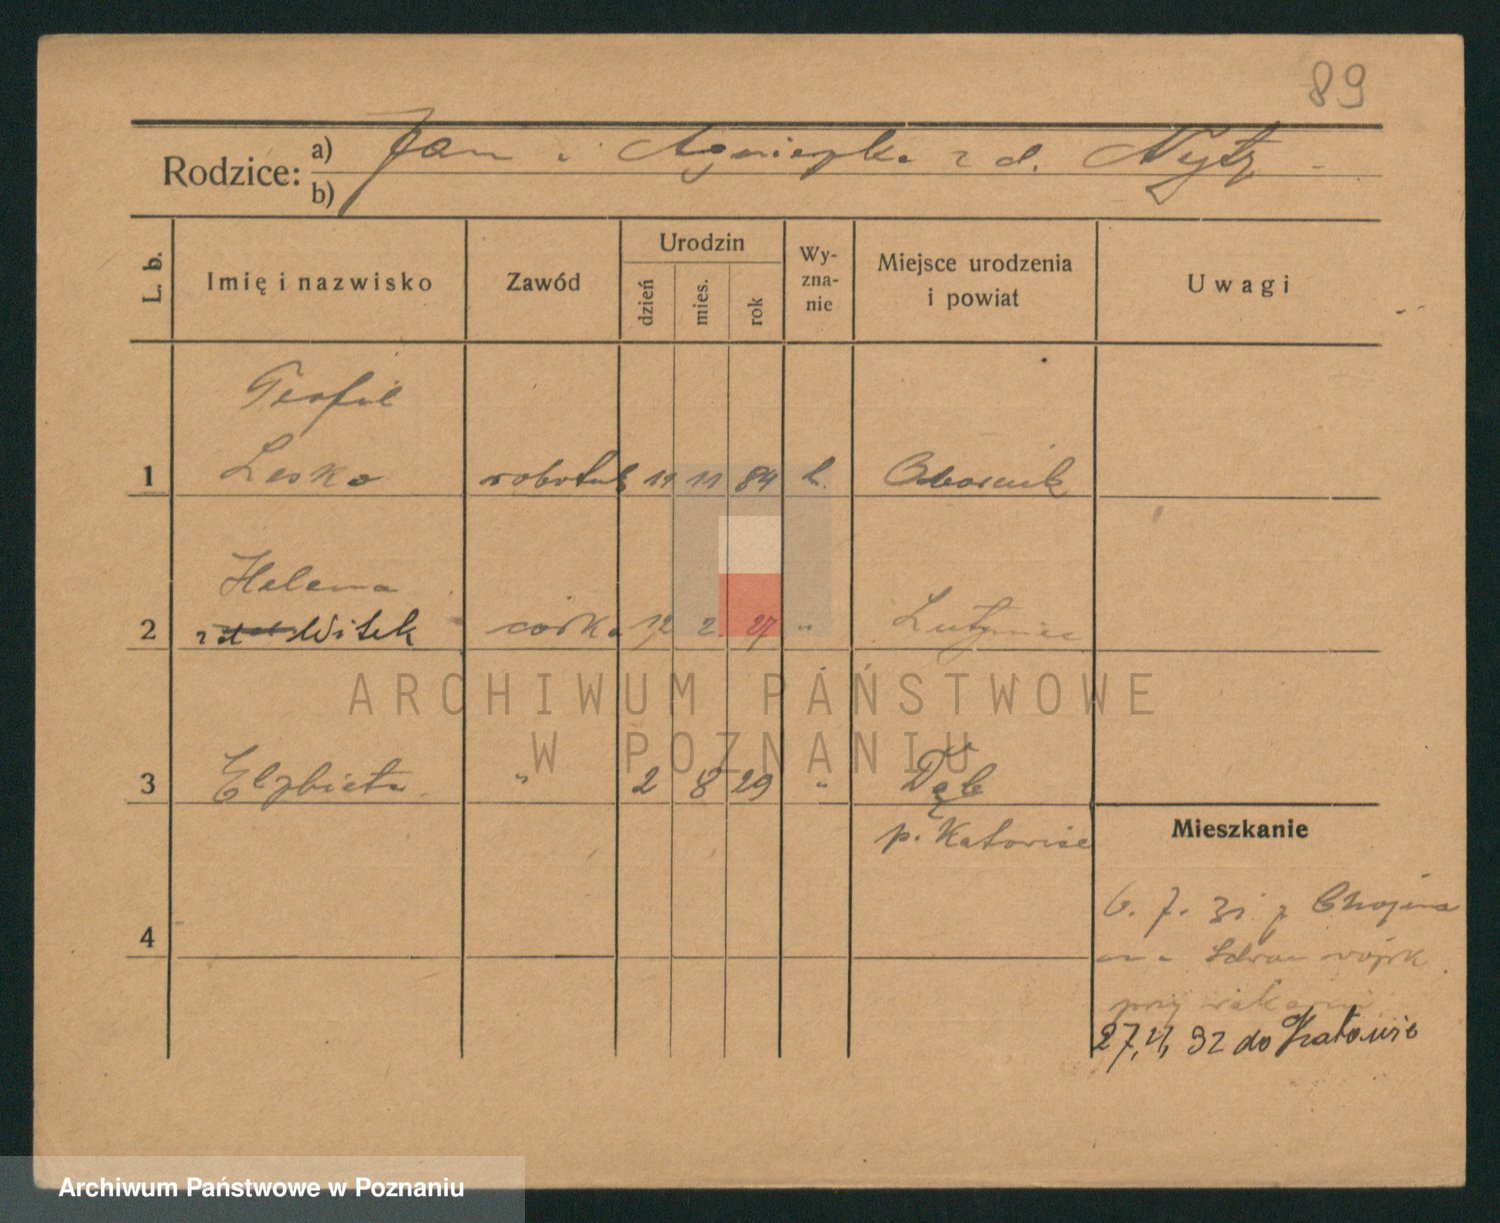 89
Rodzice: a) Jan i Agnieszka z d. Nytz
b)
L. b. Imię i nazwisko Zawód Urodzin dzień mies. rok Wy-zna-nie Miejsce urodzenia i powiat Uwagi
Teofil
1 Lesko robotnik 11 11 84 k. Obornik
Helena
2 z Witek córka 12 2 27 "
3 Elzbieta " 2 8 29 " Dąb
p. Katowice
Mieszkanie
4
6. 7. 31 z Chojna
27, 4, 32 do Katowic
ARCHIWUM PAŃSTWOWE
W POZNANIU
Archiwum Państwowe w Poznaniu